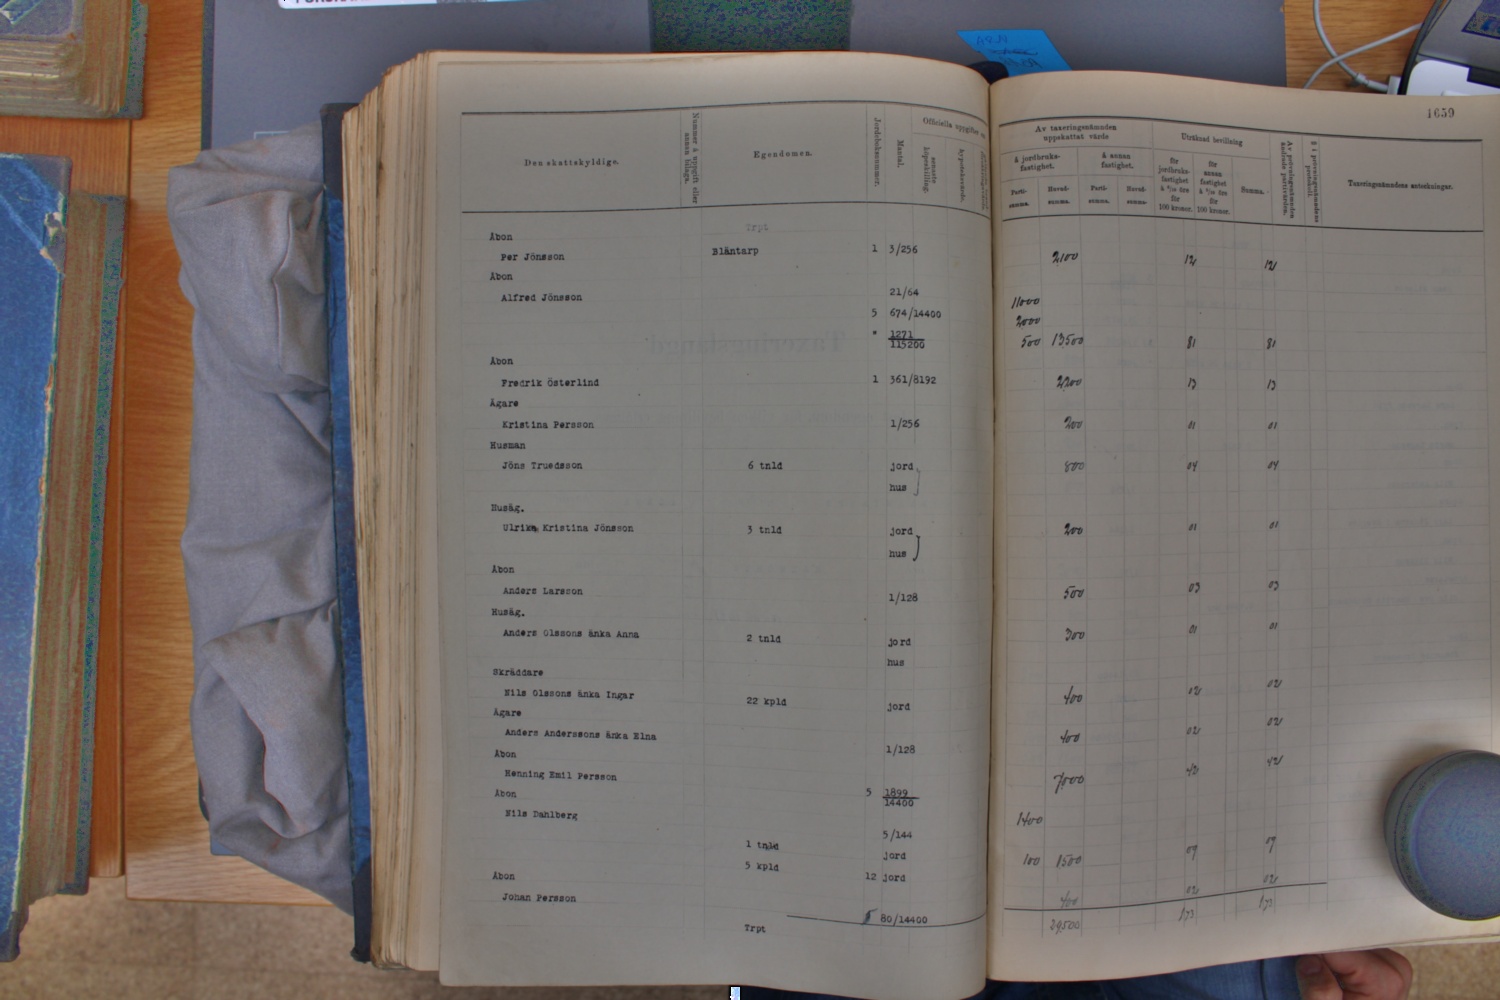 1659
Den skattskyldige.
Nummer å uppgift eller annan bilaga.
Egendomen.
Jordeboksnummer.
Mantal.
Officiella uppgifter
senaste köpeskilling.
Av taxeringsnämnden uppskattat värde
å jordbruks-fastighet.
å annan fastighet.
Parti-summa.
Huvud-summa.
Parti-summa.
Huvud-summa.
Uträknad bevillning
för jordbruks-fastighet
för annan fastighet
för 100 kronor.
för 100 kronor.
Summa.
Taxeringsnämndens anteckningar.
Trpt
Åbon
Per Jönsson Bläntarp 1 3/256 2100 12 12
Åbon
Alfred Jönsson 21/64 11000
5 674/14400 2000
" 1271/115200 500 13500 81 81
Åbon
Fredrik Österlind 1 361/8192 2200 13 13
Ägare
Kristina Persson 1/256 200 01 01
Husman
Jöns Truedsson 6 tnld jord 800 04 04
hus
Husäg.
Ulrika Kristina Jönsson 3 tnld jord 200 01 01
hus
Åbon
Anders Larsson 1/128 500 03 03
Husäg.
Anders Olssons änka Anna 2 tnld jord 300 01 01
hus
Skräddare
Nils Olssons änka Ingar 22 kpld jord 400 02 02
Ägare
Anders Anderssons änka Elna 1/128 400 02 02
Åbon
Henning Emil Persson 5 1899/14400 7000 42 42
Åbon
Nils Dahlberg 5/144 1400
1 tnld jord 100 1500 09 09
5 kpld 12 jord
Åbon
Johan Persson 80/14400 400 02 02
Trpt 29500 173 173